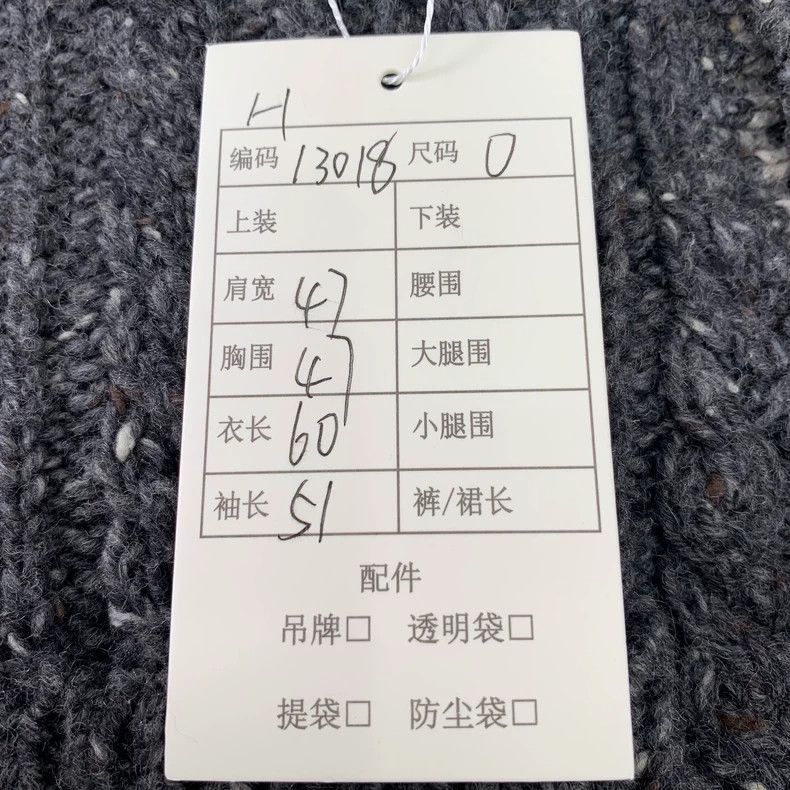 H
编码 13018 尺码 0
上装 下装
肩宽 47 腰围
胸围 47 大腿围
衣长 60 小腿围
袖长 51 裤/裙长
配件
吊牌□ 透明袋□
提袋□ 防尘袋□